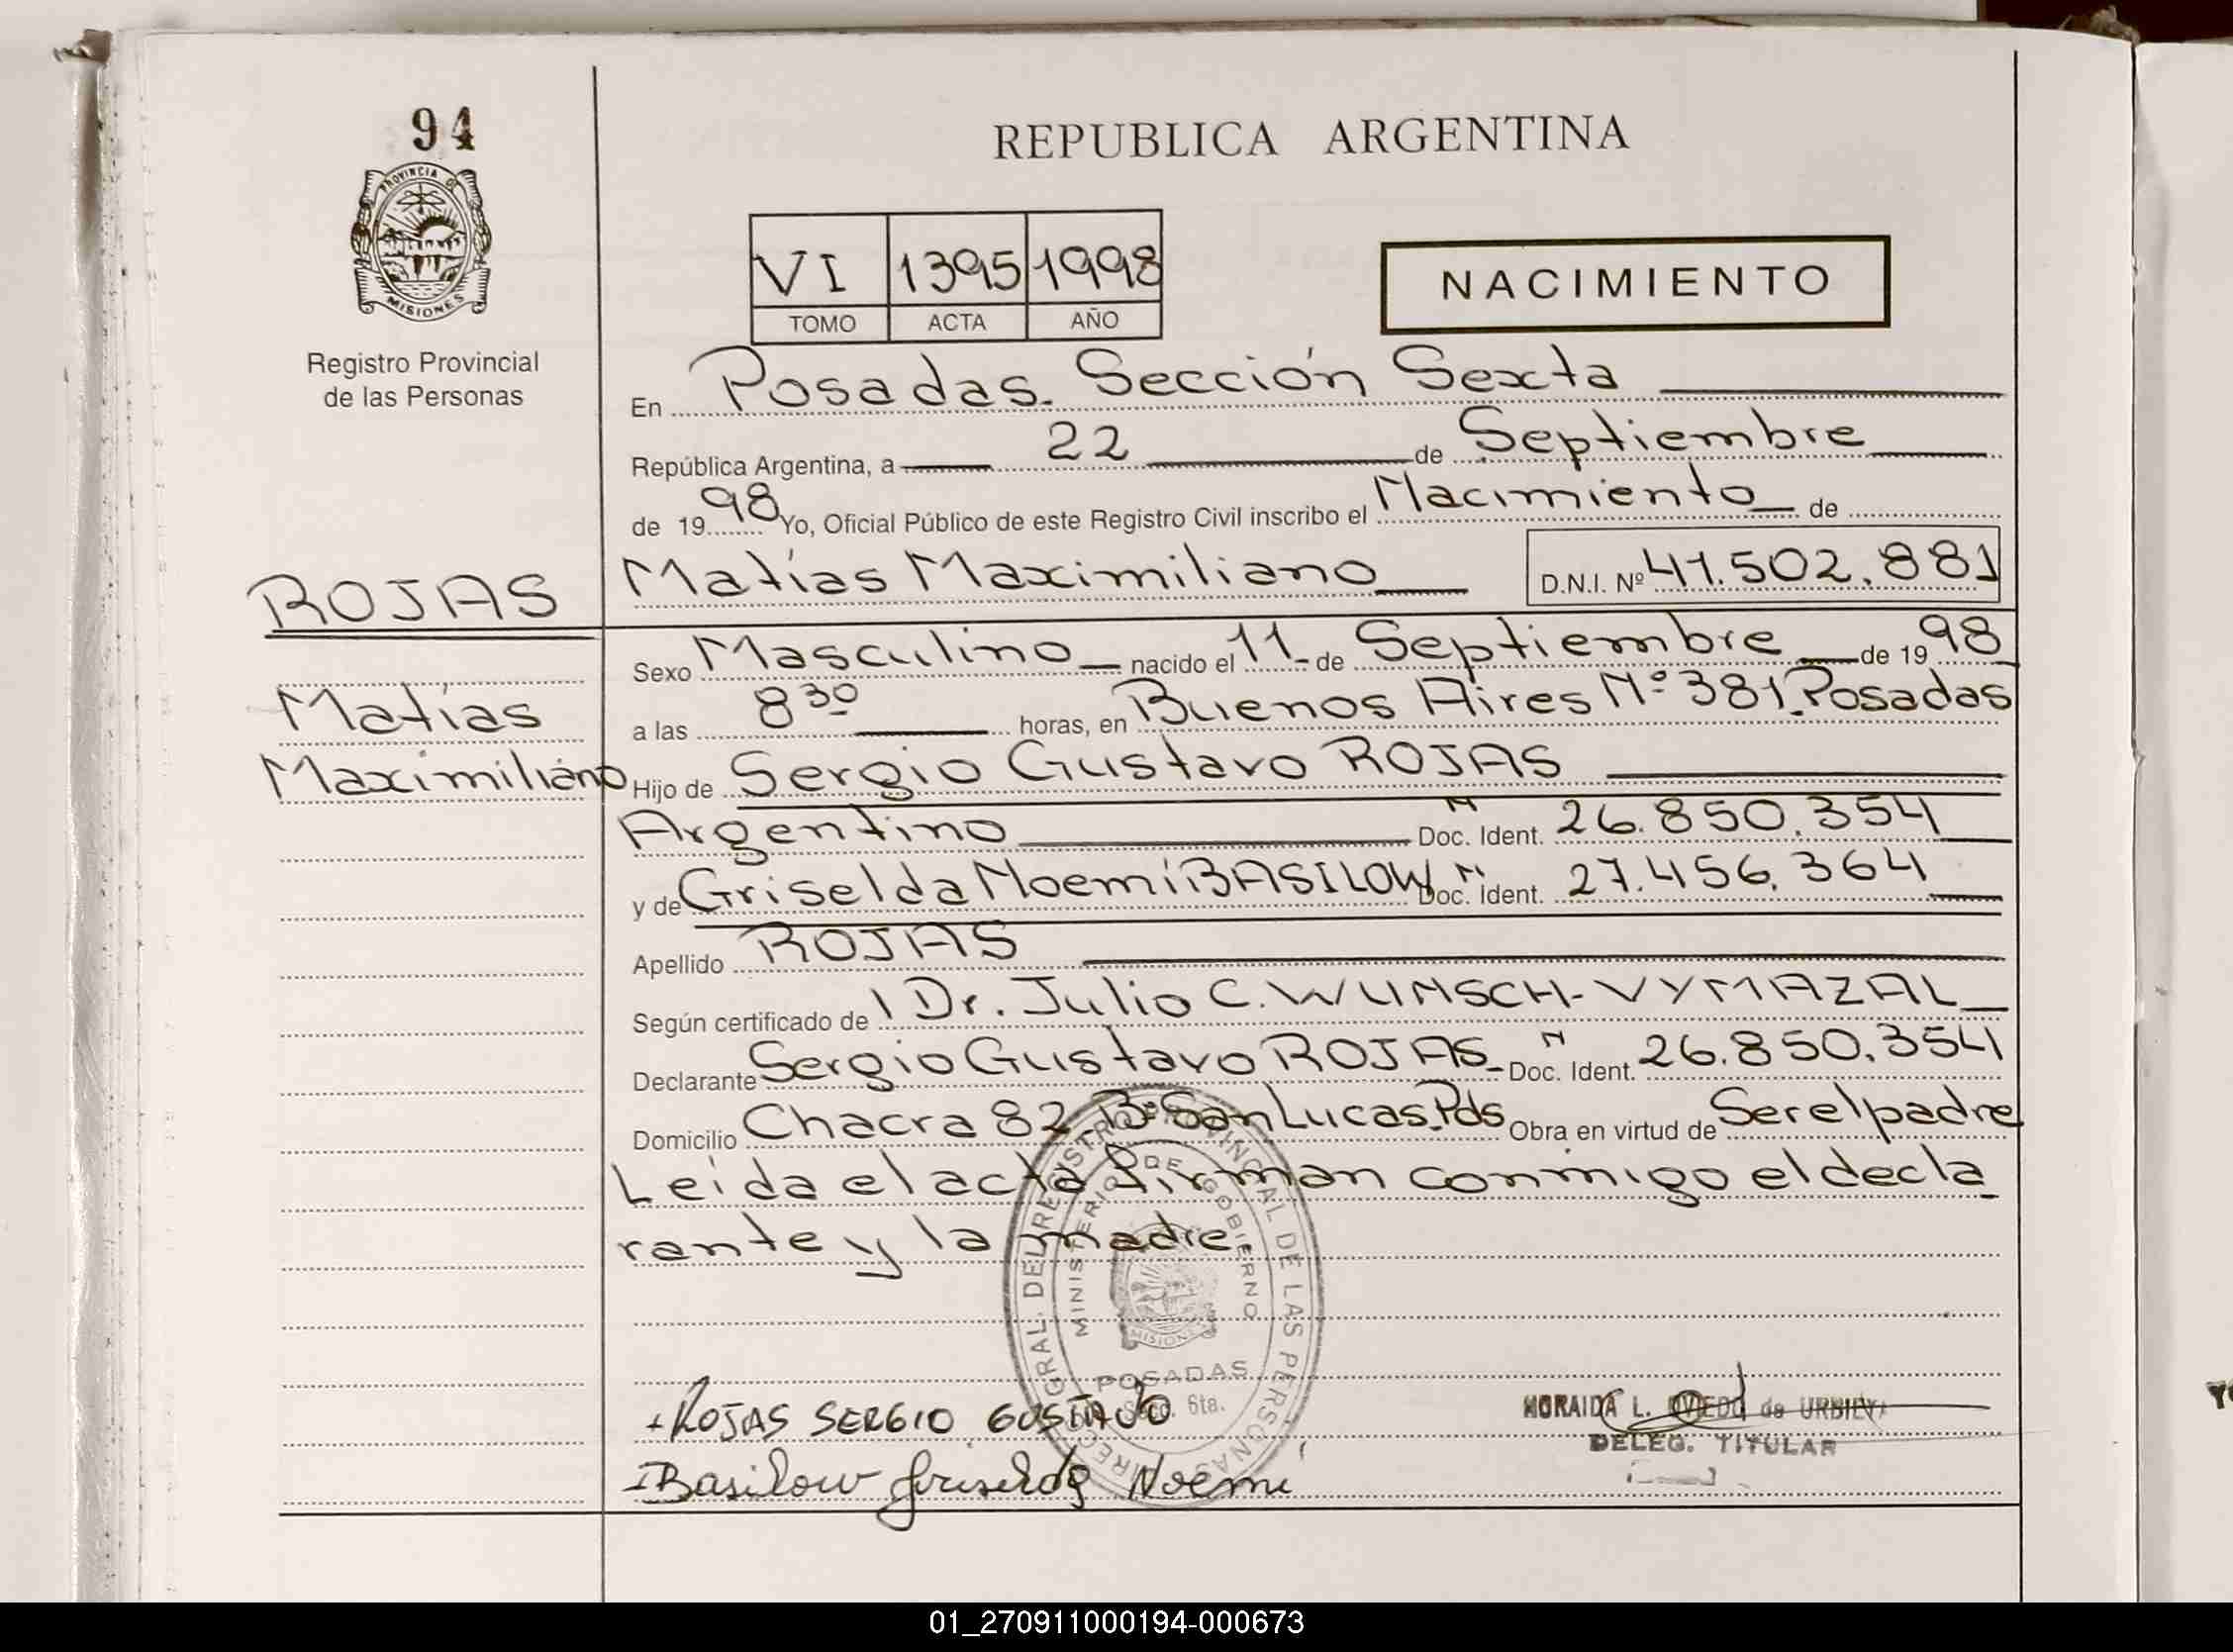 94
PROVINCIA DE
MISIONES
Registro Provincial
de las Personas
REPUBLICA ARGENTINA
VI 1395 1998
TOMO ACTA AÑO
NACIMIENTO
En Posadas. Sección Sexta
República Argentina, a 22 de Septiembre
de 1998 Yo, Oficial Público de este Registro Civil inscribo el Nacimiento de
ROJAS
Matías Maximiliano D.N.I. Nº 41.502.881
Sexo Masculino nacido el 11 de Septiembre de 1998
Matías
a las 8 30 horas, en Buenos Aires Nº 381. Posadas
Maximiliano
Hijo de Sergio Gustavo ROJAS
Argentino N Doc. Ident. 26.850.354
y de Griselda Noemí BASILOW N Doc. Ident. 27.456.364
Apellido ROJAS
Según certificado de Dr. Julio C. WUNSCH-VYMAZAL
Declarante Sergio Gustavo ROJAS N Doc. Ident. 26.850.354
Domicilio Chacra 82. Bº San Lucas. Pds Obra en virtud de Ser el padre
Leída el acta firman conmigo el decla
rante y la madre.
DIREC. GRAL. DEL REGISTRO PROVINCIAL DE LAS PERSONAS
MINISTERIO DE GOBIERNO
MISIONES
POSADAS
Secc. 6ta.
ROJAS SERGIO GUSTAVO
Basilow Griselda Noemí
NORAIDA L. OVIEDO de
DELEG. TITULAR
01_270911000194-000673